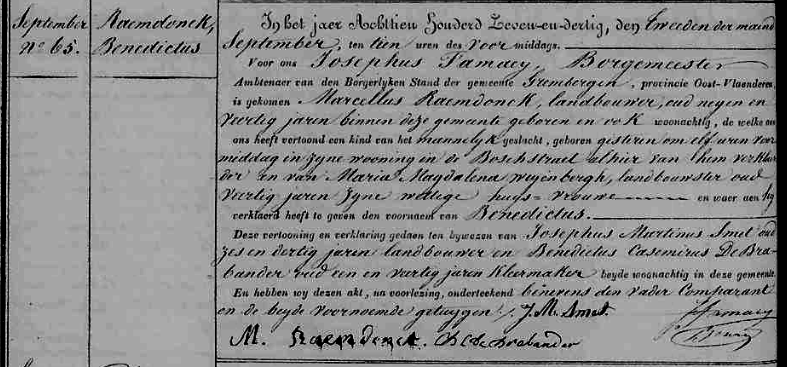 September
nº 65.
Raemdonck,
Benedictus
In het jaer Achttien Honderd Zeven-en-dertig, den tweeden der maand
September, ten tien uren des voor middags.
Voor ons Josephus Tamaey, Borgemeester
Ambtenaer van den Borgerlyken Stand der gemeente Grembergen, provincie Oost-Vlaenderen,
is gekomen Marcellus Raemdonck, landbouwer, oud negen en
veertig jaren binnen deze gemeente geboren en ook woonachtig, de welke aen
ons heeft vertoond een kind van het mannelyk geslacht, geboren gisteren om elf uren voor
middag in zyne wooning in de Boschstraet alhier van hem verklar
der en van Maria Magdalena Weyenbergh, landbouwster oud
veertig jaren zyne wettige huys-vrouwe en waer aen hy
verklaerd heeft te geven den voornaem van Benedictus.
Deze vertooning en verklaring gedaen ten bywezen van Josephus Martinus Smet oud
zes en dertig jaren landbouwer en Benedictus Casimirus De Bra-
bander oud een en veertig jaren kleermaker beyde woonachtig in deze gemeente.
En hebben wy dezen akt, na voorlezing, onderteekend benevens den vader Comparant
en de beyde voornoemde getuygen J. M. Smet.
M. Raemdonck. B C De Brabander